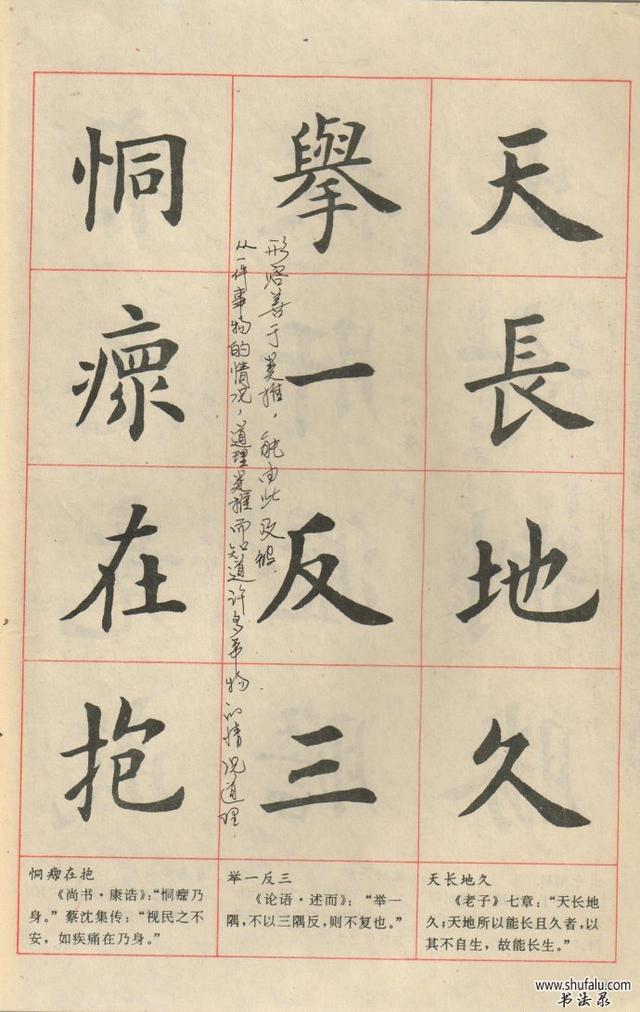 天長地久
舉一反三
恫瘝在抱
形容善于类推，能由此及彼.
从一件事物的情况，道理类推而知道许多事物的情况道理.
天长地久
《老子》七章：“天长地
久；天地所以能长且久者，以
其不自生，故能长生。”
举一反三
《论语·述而》：“举一
隅，不以三隅反，则不复也。”
恫瘝在抱
《尚书·康诰》：“恫瘝乃
身。”蔡沈集传：“视民之不
安，如疾痛在乃身。”
www.shufalu.com
书法录